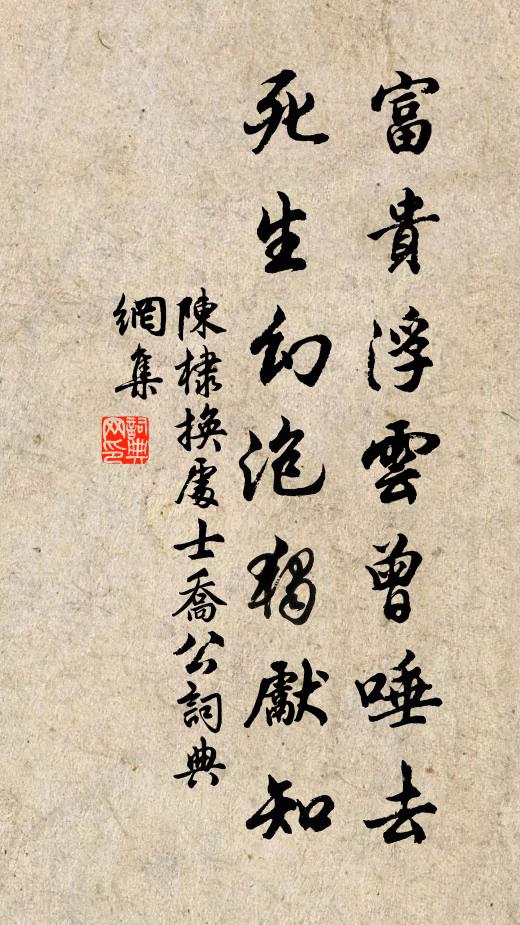 富貴浮雲曾唾去
死生幻泡獨獻知
陳棣換處士喬公詞典
網集
詞典
网印